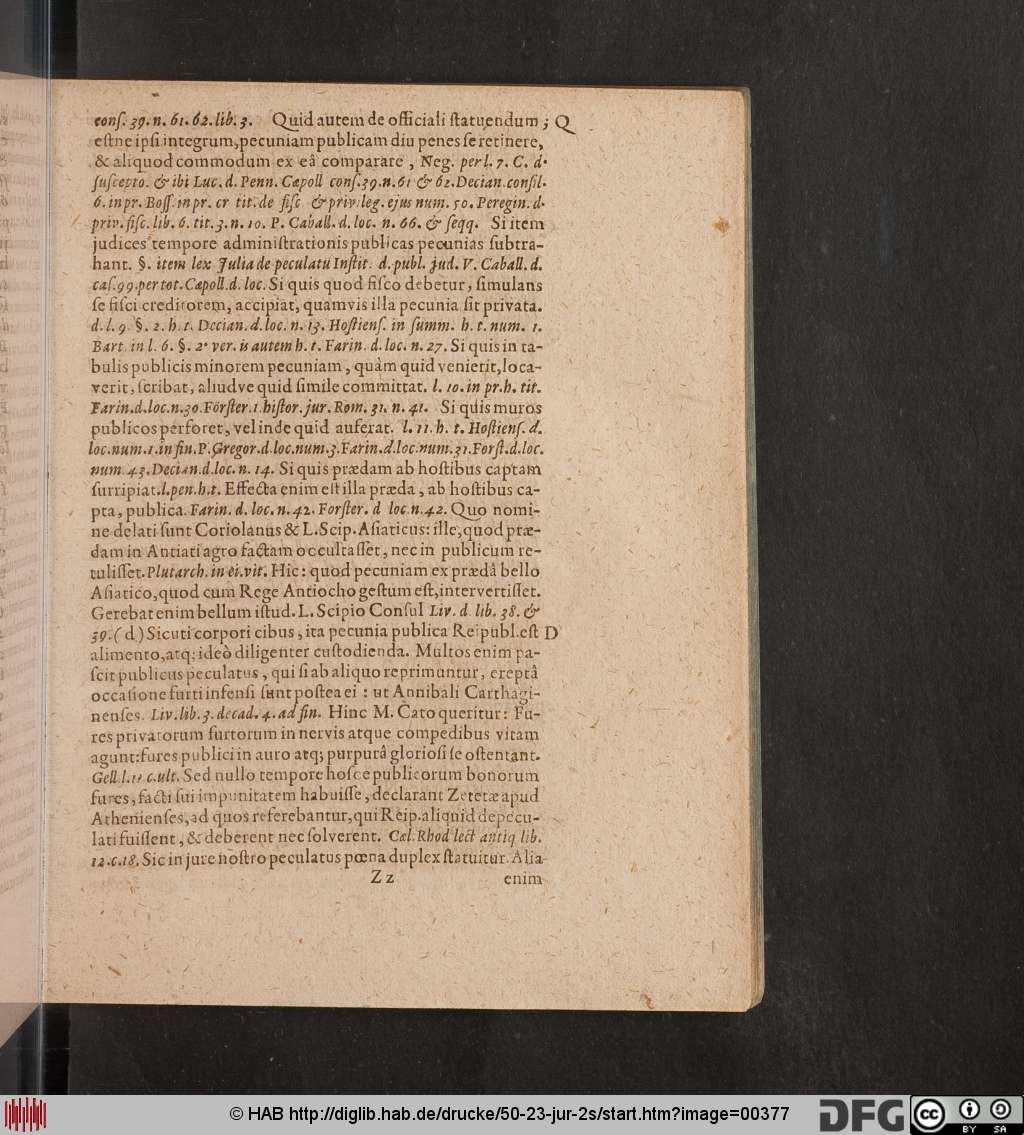 conſ. 39. n. 61. 62. lib. 3. Quid autem de officiali ſtatuendum; Q
eſtne ipſi integrum, pecuniam publicam diu penes ſe retinere,
& aliquod commodum ex eâ comparare, Neg. per l. 7. C. d.
ſuſcepto. & ibi Luc. d. Penn. Capoll conſ. 39. n. 61 & 62. Decian. conſil.
6. in pr. Boſſ. in pr. cr tit. de fiſc & priv. leg. ejus num. 50. Peregin. d.
priv. fiſc. lib. 6. tit. 3. n. 10. P. Caball. d. loc. n. 66. & ſeqq. Si item
judices tempore adminiſtrationis publicas pecunias ſubtra-
hant. §. item lex Julia de peculatu Inſtit. d. publ. jud. V. Caball. d.
caſ. 99. per tot. Capoll. d. loc. Si quis quod fiſco debetur, ſimulans
ſe fiſci creditorem, accipiat, quamvis illa pecunia ſit privata.
d. l. 9. §. 2. h. t. Decian. d. loc. n. 13. Hoſtienſ. in ſumm. h. t. num. 1.
Bart. in l. 6. §. 2. ver. is autem h. t. Farin. d. loc. n. 27. Si quis in ta-
bulis publicis minorem pecuniam, quàm quid venierit, loca-
verit, ſcribat, aliudve quid ſimile committat. l. 10. in pr. h. tit.
Farin. d. loc. n. 30. Förſter. 1. hiſtor. jur. Rom. 31. n. 41. Si quis muros
publicos perforet, vel inde quid auferat. l. 11. h. t. Hoſtienſ. d.
loc. num. 1. in fin. P. Gregor. d. loc. num. 3. Farin. d. loc. num. 31. Forſt. d. loc.
num. 43. Decian. d. loc. n. 14. Si quis prædam ab hoſtibus captam
ſurripiat. l. pen. h. t. Effecta enim eſt illa præda, ab hoſtibus ca-
pta, publica. Farin. d. loc. n. 42. Forſter. d loc. n. 42. Quo nomi-
ne delati ſunt Coriolanus & L. Scip. Aſiaticus: ille, quod præ-
dam in Antiati agro factam occultaſſet, nec in publicum re-
tuliſſet. Plutarch. in ei. vit. Hic: quod pecuniam ex prædâ bello
Aſiatico, quod cum Rege Antiocho geſtum eſt, intervertiſſet.
Gerebat enim bellum iſtud. L. Scipio Conſul Liv. d lib. 38. &
39. (d) Sicuti corpori cibus, ita pecunia publica Reipubl. eſt D
alimento, atq; ideò diligenter cuſtodienda. Multos enim pa-
ſcit publicus peculatus, qui ſi ab aliquo reprimuntur, ereptâ
occaſione furti infenſi ſunt poſtea ei: ut Annibali Carthagi-
nenſes. Liv. lib. 3. decad. 4. ad fin. Hinc M. Cato queritur: Fu-
res privatorum furtorum in nervis atque compedibus vitam
agunt: fures publici in auro atq; purpurâ glorioſi ſe oſtentant.
Gell l. 11 c. ult. Sed nullo tempore hoſce publicorum bonorum
fures, facti ſui impunitatem habuiſſe, declarant Zetetæ apud
Athenienſes, ad quos referebantur, qui Reip. aliquid depecu-
lati fuiſſent, & deberent nec ſolverent. Cæl. Rhod lect antiq lib.
12. c. 18. Sic in jure noſtro peculatus pœna duplex ſtatuitur. Alia
Z z enim
© HAB http://diglib.hab.de/drucke/50-23-jur-2s/start.htm?image=00377
DFG cc BY SA